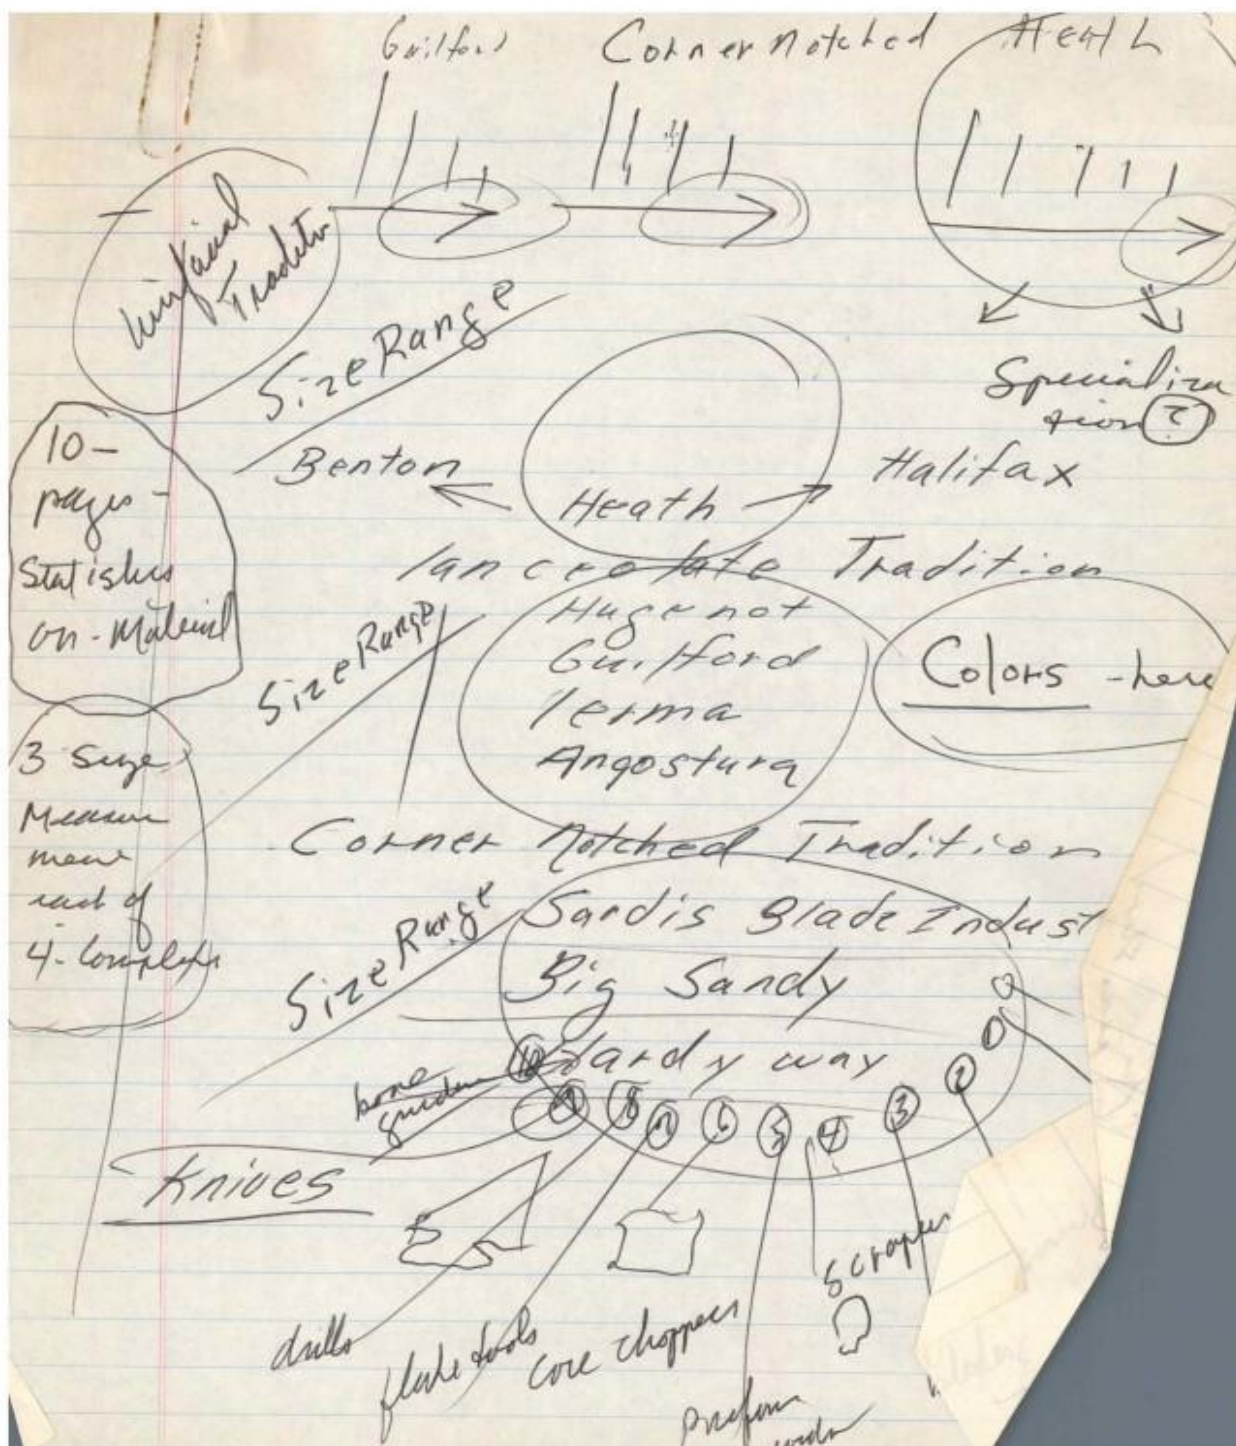 Guilford Corner Notched Heath
Unifacial
Tradition
Size Range
Specializa
tion ?
10 -
pages -
Statistics
on - Material
Benton Heath Halifax
lanceolate Tradition
Hugenot
Guilford
Lerma
Angostura
Size Range
Colors - here
3 Size
Measure
ment
each of
4 - Complexes
Corner Notched Tradition
Size Range
Sardis Blade Indust
Big Sandy
Hardy way
0
1
2
3
4
5
6
7
8
9
10
bone
Knives
scrapers
drills
flake tools
core choppers
preform